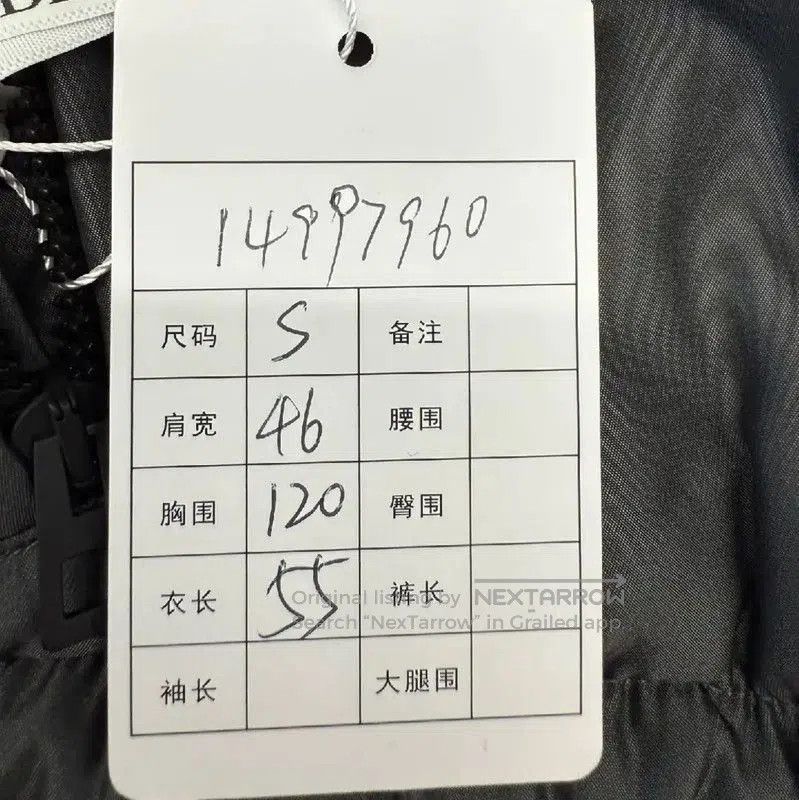 14997960
尺码 S 备注
肩宽 46 腰围
胸围 120 臀围
衣长 55 裤长
袖长 大腿围
Original listing by NEXTARROW
Search “NexTarrow” in Grailed app